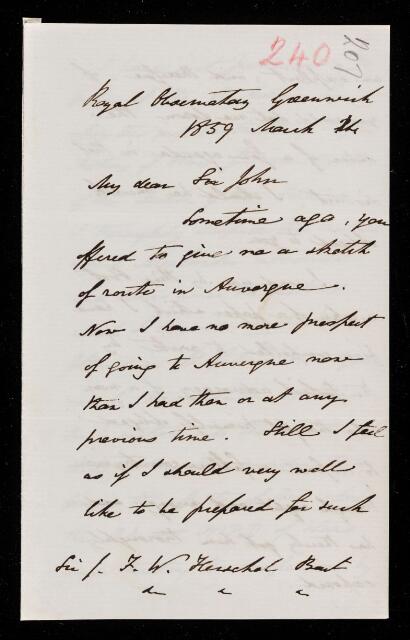 240
207
Royal Observatory Greenwich
1859 March
My dear Sir John
Sometime ago, you
offered to give me a sketch
of route in Auvergne.
Now I have no more prospect
of going to Auvergne now
than I had then or at any
previous time. Still I feel
as if I should very well
like to be prepared for such
Sir J. F. W. Herschel Bart